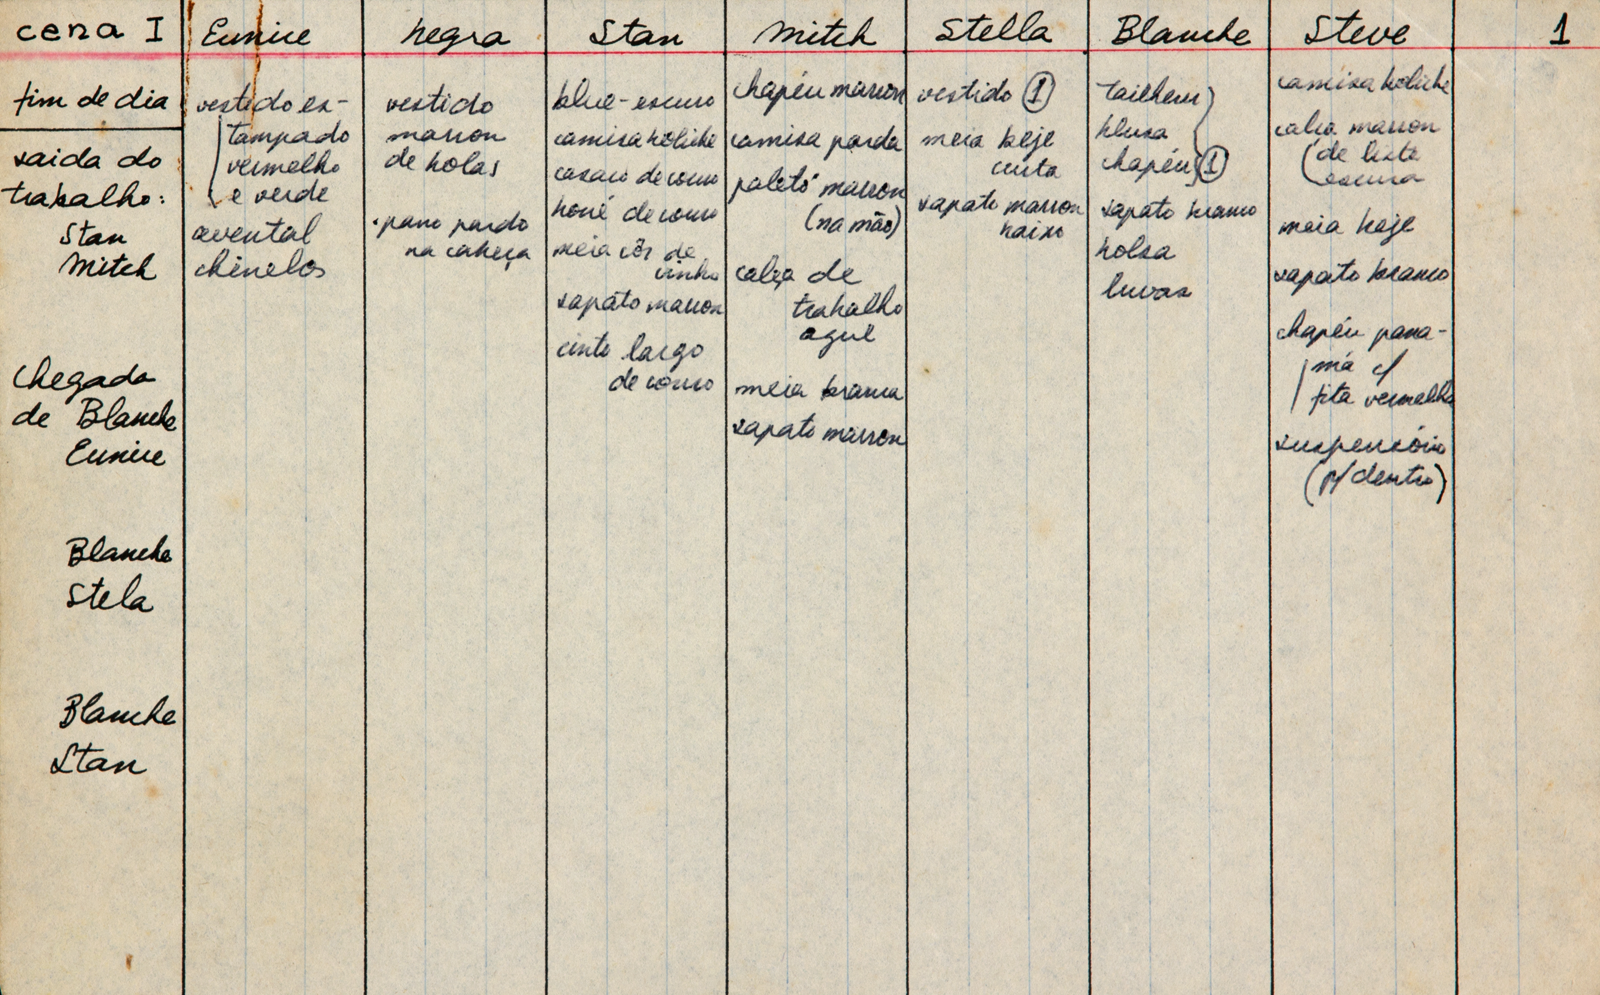 cena I
Eunice
negra
Stan
Mitch
Stella
Blanche
Steve
1
fim de dia
saida do
trabalho:
Stan
Mitch
Chegada
de Blanche
Eunice
Blanche
Stela
Blanche
Stan
vestido es-
tampado
vermelho
e verde
avental
chinelos
vestido
marron
de bolas
pano pardo
na cabeça
blue-escuro
camisa boliche
casaco de couro
boné de couro
meia côr de
vinho
sapato marron
cinto largo
de couro
chapéu marron
camisa parda
paletó marron
(na mão)
calça de
trabalho
azul
meia branca
sapato marron
vestido 1
meia beje
curta
sapato marron
baixo
tailheur
blusa
chapéu 1
sapato branco
bolsa
luvas
camisa boliche
calça marron
de liste
escura
meia beje
sapato branco
chapéu pana-
má c/
fita vermelha
suspensório
(p/ dentro)